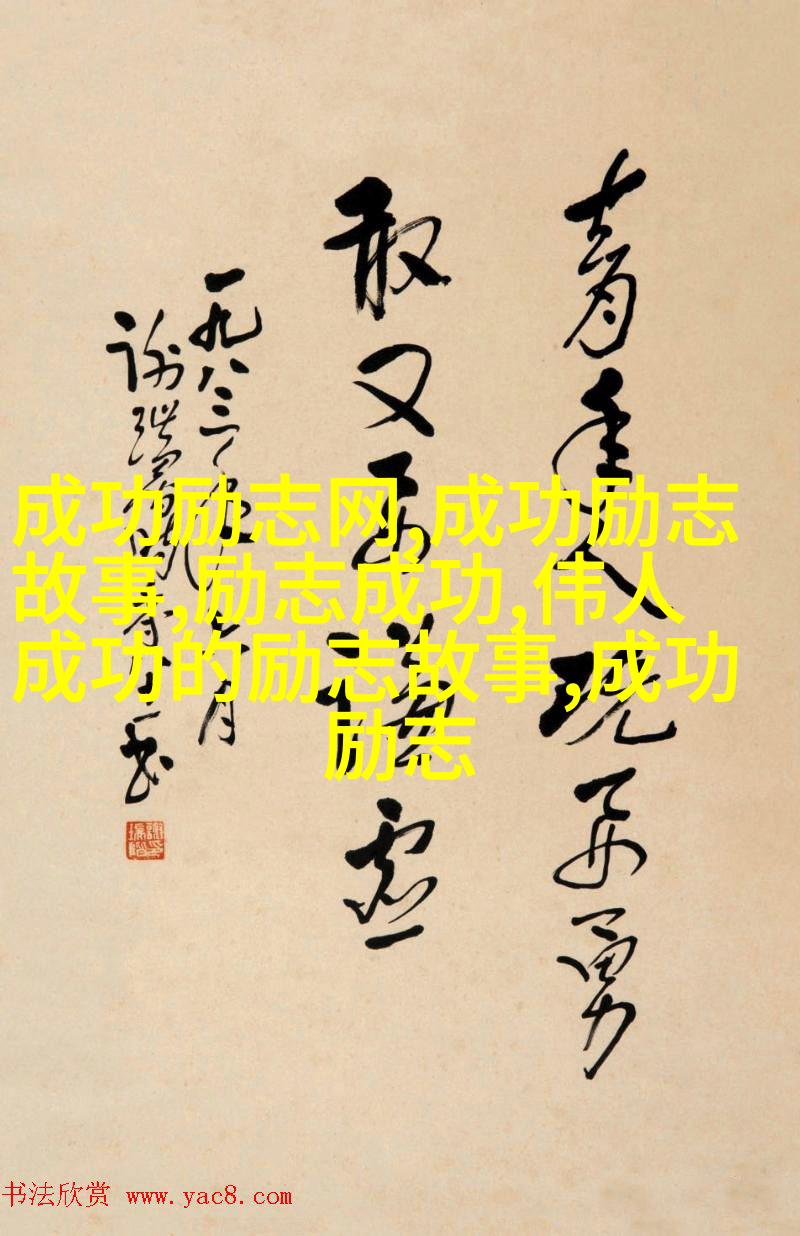 青年人既要勇
敢又要謙虚
一九八三年
成功励志网,成功励志
故事,励志成功,伟人
成功的励志故事,成功
励志
书法欣赏 www.yac8.com